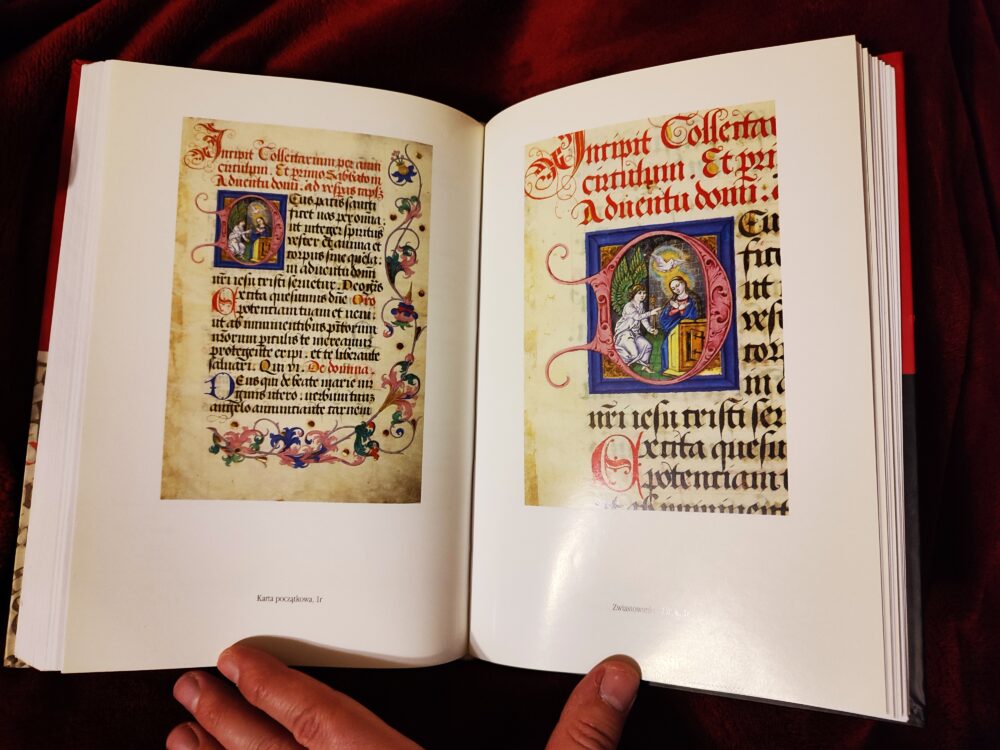 Incipit Collectarium per anni
circulum. Et primo Sabbatom
Adventu domi. ad vesperas
Deus patis sancti
ficet vos per omia.
ut integer spiritus
vester et anima et
corpus sine quela.
in adventu domini
nri iesu cristi servetur. Deo gras
Excita quesumus dne Oro
potentiam tuam et veni.
ut ab imminentibus
protegente eripi. et te liberante
salvari. Qui vi. De domina.
Deus qui de beate marie vir
ginis utero. verbum tuum
angelo annunciante carnem
Karta początkowa, 1r
Incipit Collectar
circulum. Et pri
Adventu domi.
Deu
fice
ut i
vest
cor
in a
nri iesu cristi ser
Excita quesu
potentiam
Zwiastowanie